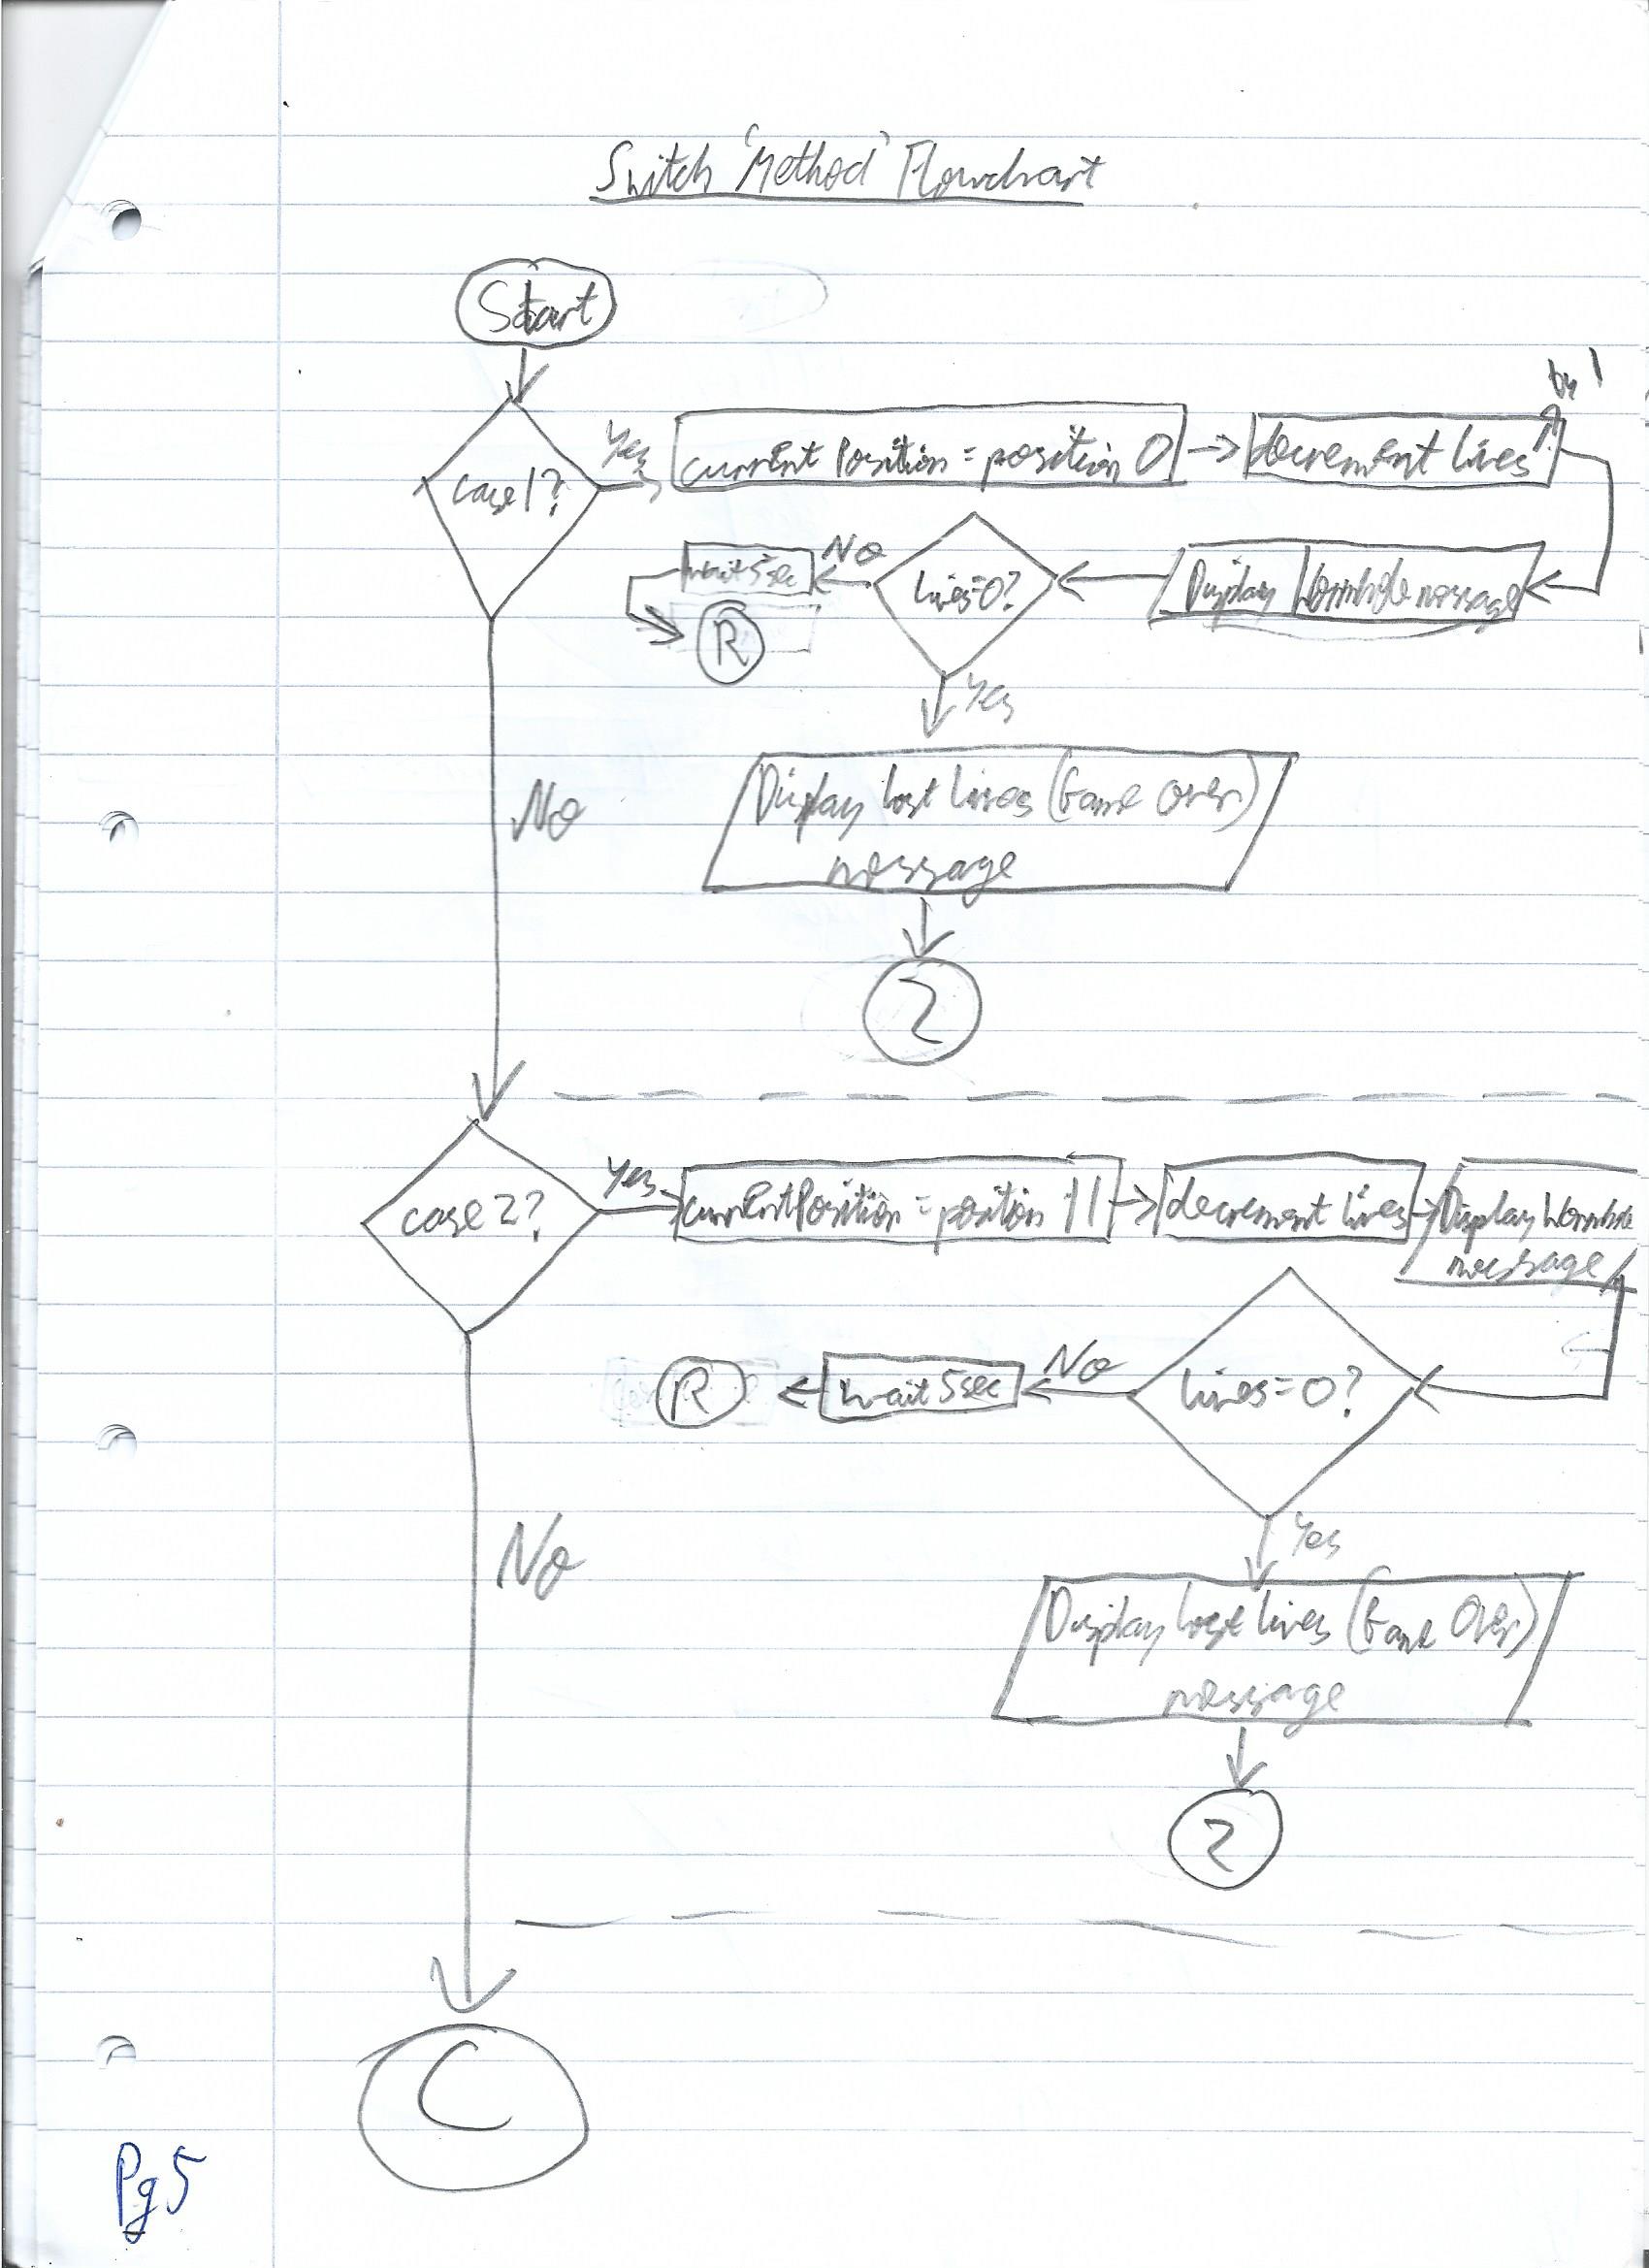 Switch 'Method' Flowchart
Start
by 1
case 1?
Yes
currentPosition = position 0
decrement lives
Display Wormhole message
lives=0?
No
wait 5sec
R
Yes
Display lost lives (Game Over)
message
2
No
case 2?
Yes
currentPosition = position 11
decrement lives
Display Wormhole
message
lives=0?
No
wait 5sec
R
Yes
Display lost lives (Game Over)
message
2
No
C
Pg 5